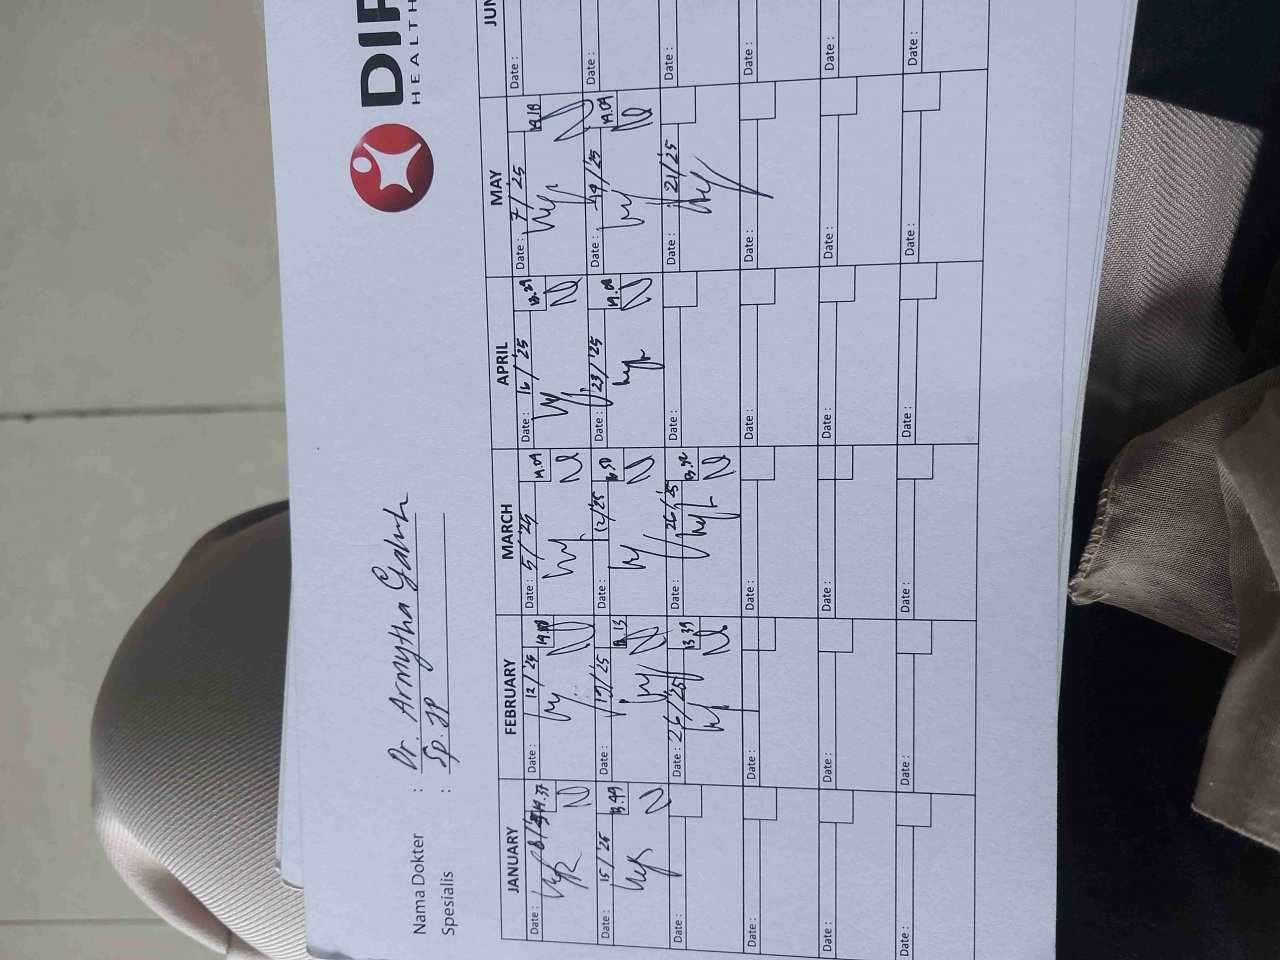 DIP
HEALTH
Nama Dokter : Dr. Armytha Galuh
Spesialis : Sp. JP
JANUARY FEBRUARY MARCH APRIL MAY JUN
Date : 8/ 14.37 Date : 12/'25 Date : 5/'25 14.09 Date : 16/'25 13.29 Date : 7/'25 14.18 Date :
Date : 15/'25 13.49 Date : 19/'25 Date : 12/'25 Date : 23/'25 14.08 Date : 14/'25 14.09 Date :
Date : Date : 26/'25 13.39 Date : 26/'25 Date : Date : 21/'25 Date :
Date : Date : Date : Date : Date : Date :
Date : Date : Date : Date : Date : Date :
Date : Date : Date : Date : Date : Date :